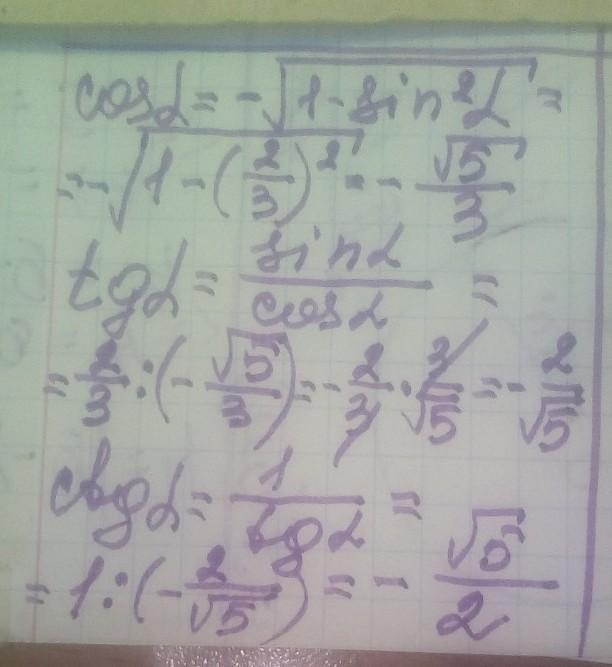 cosα = -√(1 - sin²α) =
= -√(1 - (2/3)²) = - √5/3
tgα = sinα/cosα =
= 2/3 : (- √5/3) = - 2/3 · 3/√5 = - 2/√5
ctgα = 1/tgα =
= 1 : (- 2/√5) = - √5/2